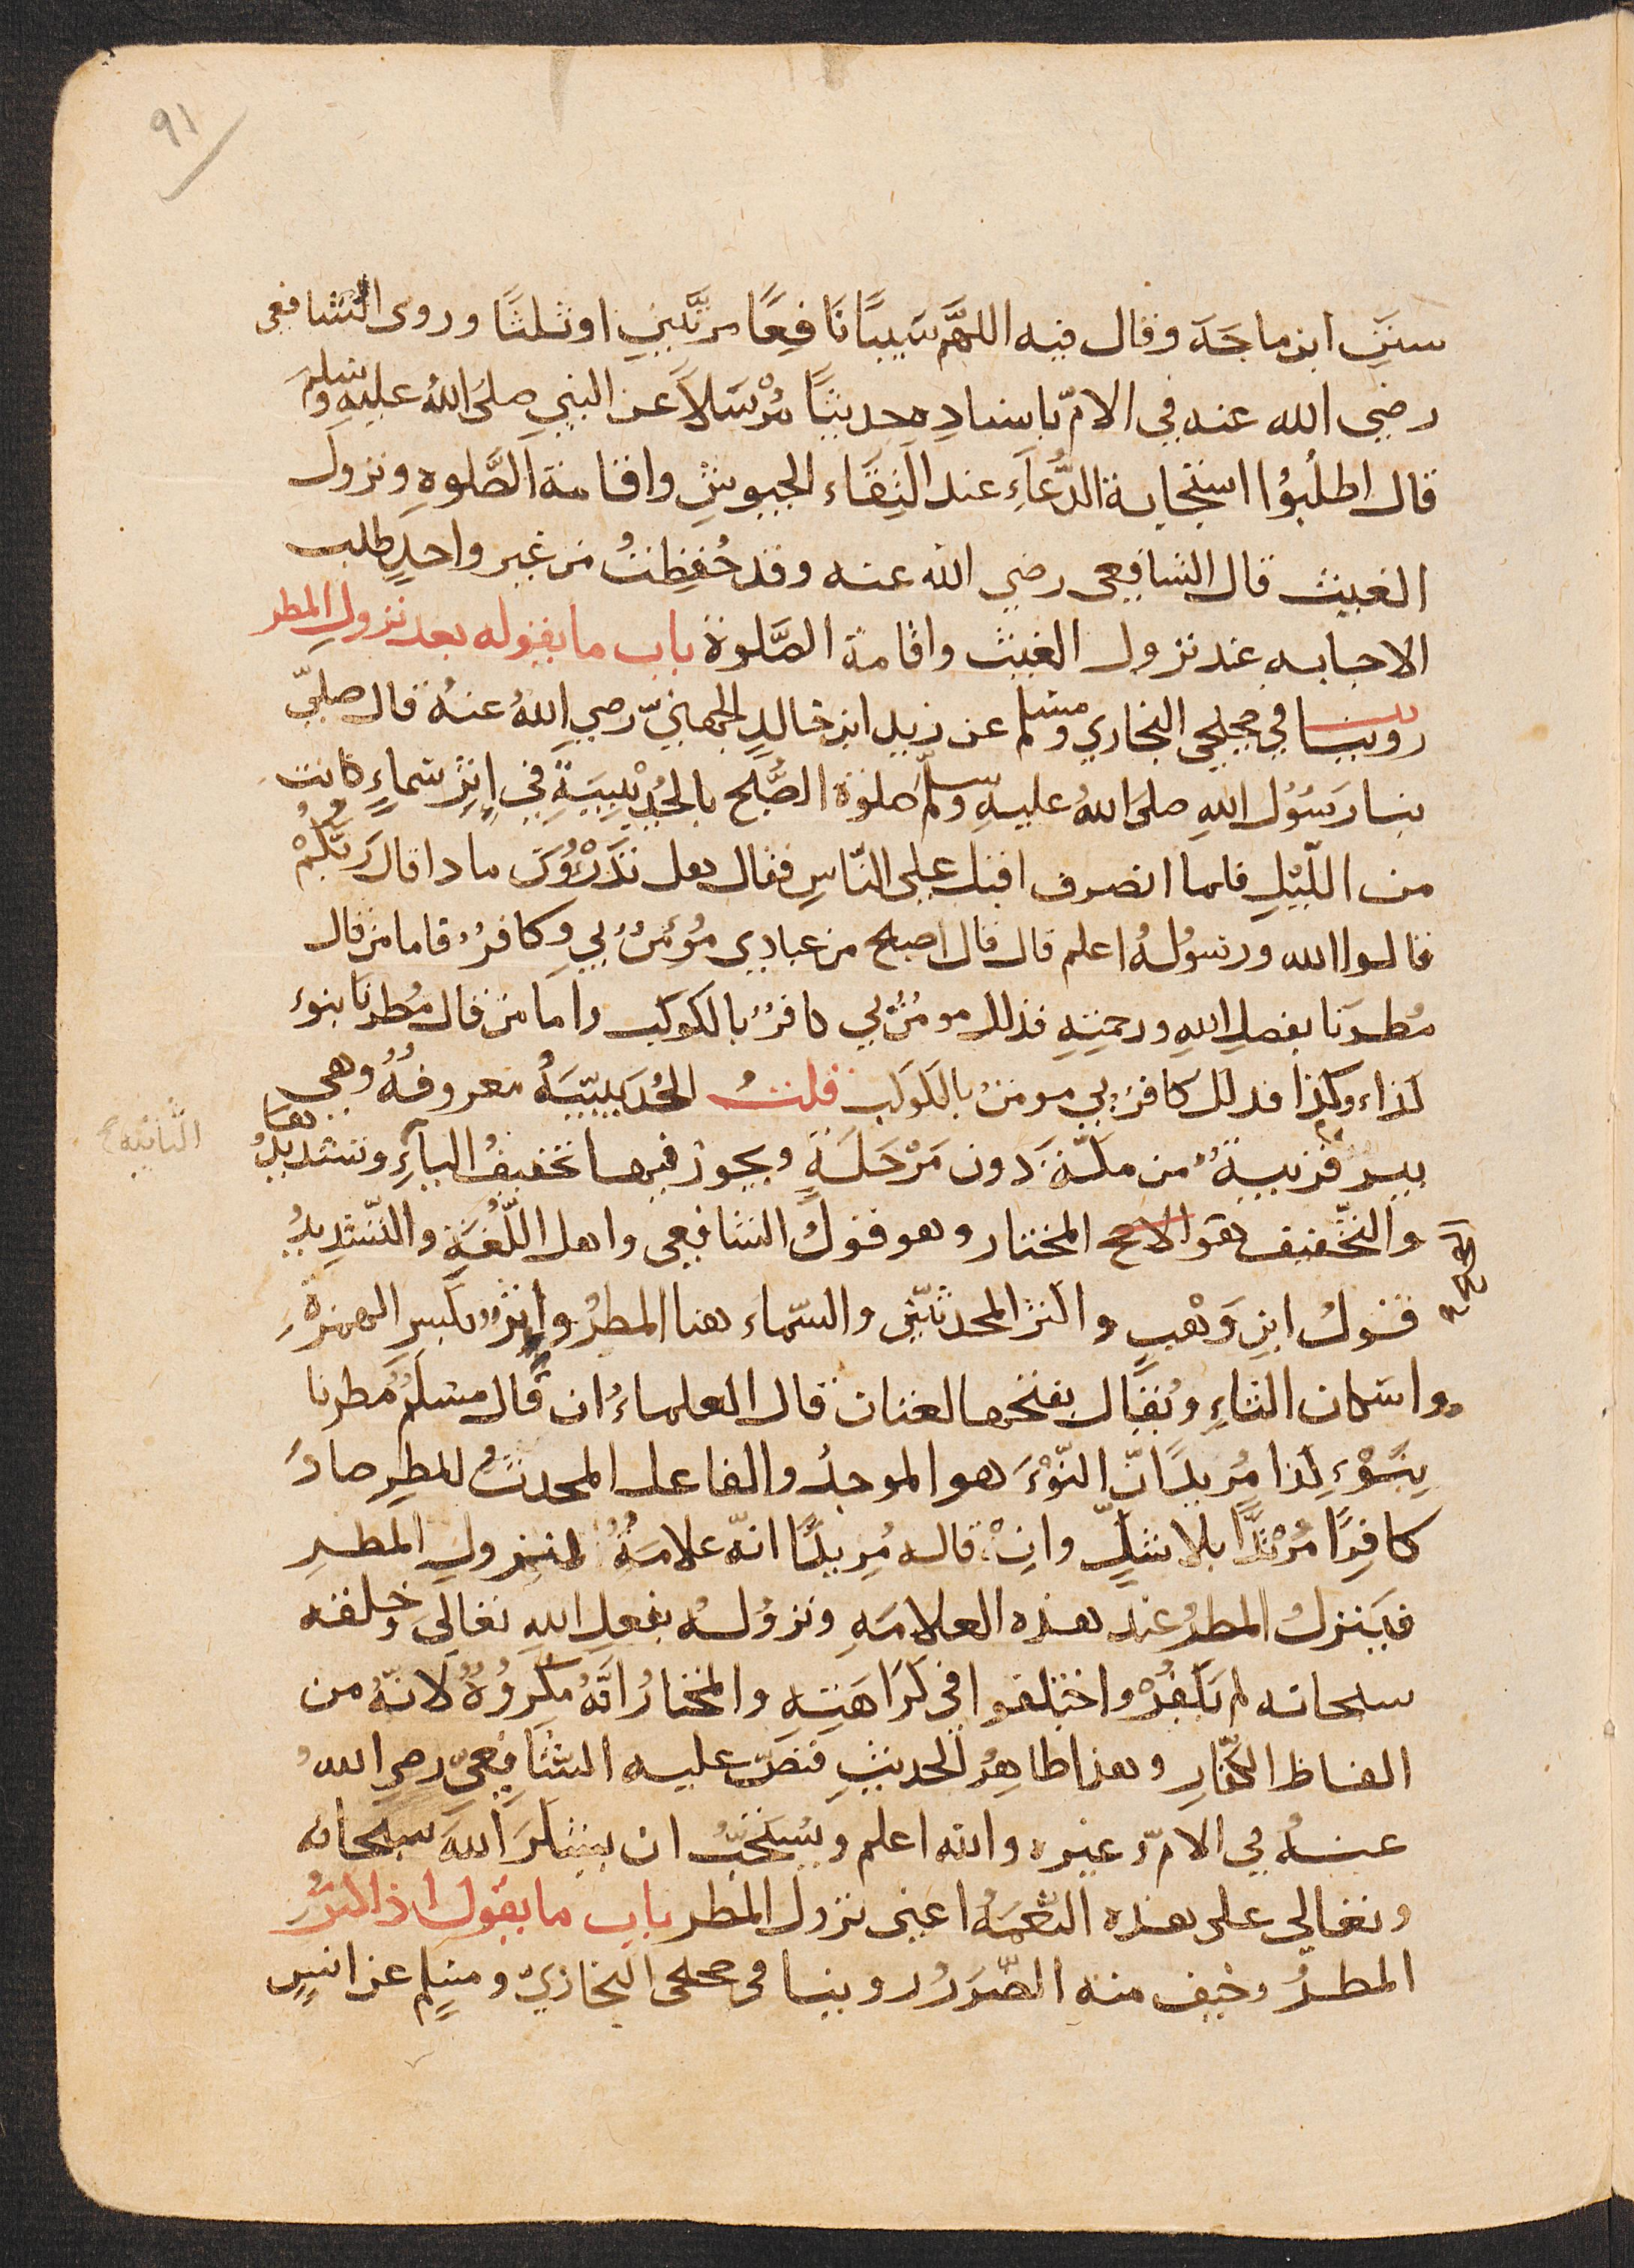 ٩١
سنن ابن ماجَهَ وقال فيه اللهمَّ سَيبًا نَافِعًا مرّتَينِ اوثلثًا وروى الشافعى
رضي الله عنه في الامّ باسنادِه حديثًا مُرْسَلاً عن النبي صلى اللهُ عليهِ وسلم
قال اطلُبوُا استجابة الدُّعَاءِ عند التِقَاء الجيوشِ واقامة الصَّلوةِ ونزول
الغيث قال الشافعى رضي الله عنه وقد حُفِظتُ من غير واحدٍ طلب
الاجابه عند نزول الغيث واقامة الصَّلوة باب ما يقوله بعد نزول المطر
روينا في صحيحي البخاري ومسلم عن زيد ابن خالدٍ الجهنيّ رضي اللهُ عنهُ قال صلىّ
بنا رَسُوُل اللهِ صلى اللهُ عليهِ وسلّم صلوة الصُّبح بالحُدْيبِيَةِ في اِثِرْ سَماءٍ كانت
من اللّيْلِ فلما انصرف اقبل على النّاسِ فقال هل تدْرُوُن ما ذا قال رَبُّكُمْ
قالوا الله ورسُولُهُ اعلم قال قال اصبح من عبادي مُؤمنٌ بي وكافرٌ فاما من قال
مُطِرنَا بفضلِ اللهِ ورحمتِهِ فذلك مومنٌ بي كافرٌ بالكوكب واما من قال مُطِرنَا بنوء
كذاء وكذا فذلك كافرٌ بي مومنٌ بالكَوكَبِ قلتُ الحُدَيبيّيَةُ معروفةٌ وهي
بير قريبةٌ من مكّة دون مَرْحَلَةٍ ويجوز فيها تخفيفُ الياَءِ وتشديدُها
الثّانيه ح
والتخّفيف هو الاصح المختار وهو قولُ الشافعى واهل اللّغَةِ والتّشديدُ
قولُ ابنِ وَهْبٍ واكثر المحدثيّن والسّماء هنا المطرُ واثرٌ بكسرِ الهمزة
واسكان الثاءِ ويُقاَل بفتحها لغتان قال العلماءُ ان قال مسلمٌ مُطرنا
بنَوْءِ كذا مُريدًا انّ النّوْءَ هو الموجدُ والفاعل المحدثُ للمطرِ صارَ
كافِرًا مُرْتدًّا بلا شكٍّ وانِْ قاله مُريدًا انّه علامةٌ لنزولِ المطرِ
فيَنزلُ المطرُ عند هذه العلامَةِ ونزوُلهُ بفعلِ اللهِ تعالى وخلقه
سبحانه لم يَكفُرْ واختلفوا في كَرَاهَتِهِ والمختارُ انّهُ مكروُهٌ لانّهُ من
الفاظ الكفّارِ وهذا ظاهِرُ الحديثِ فنصّ عليه الشَّافِعيّ رضي اللهُ
عنهُ في الامّ وغيره والله اعلم ويُسْتَحَبُّ ان يشكرَ اللهَ سبحانه
وتعالي على هذه النّعمَهُ اعنى نزول المطر باب ما يقول اذا كثرُ
المطرُ وخيف منه الضّرَرُ روينا فى صحيحى البخاريّ ومسلم عن انسٍ